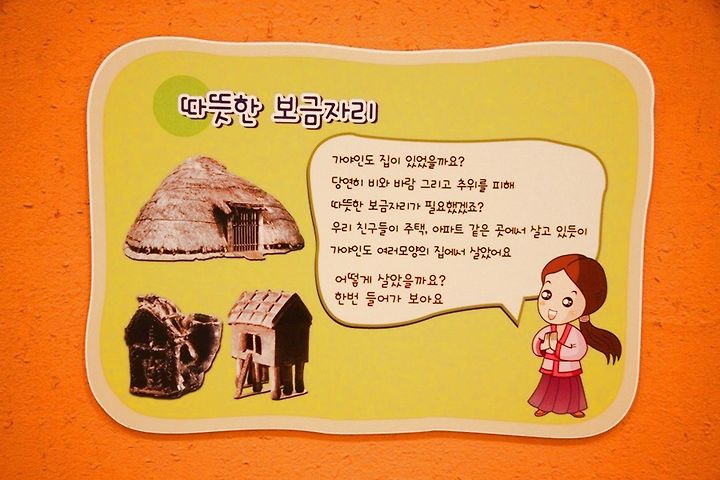 따뜻한 보금자리
가야인도 집이 있었을까요?
당연히 비와 바람 그리고 추위를 피해
따뜻한 보금자리가 필요했겠죠?
우리 친구들이 주택, 아파트 같은 곳에서 살고 있듯이
가야인도 여러모양의 집에서 살았어요
어떻게 살았을까요?
한번 들어가 보아요